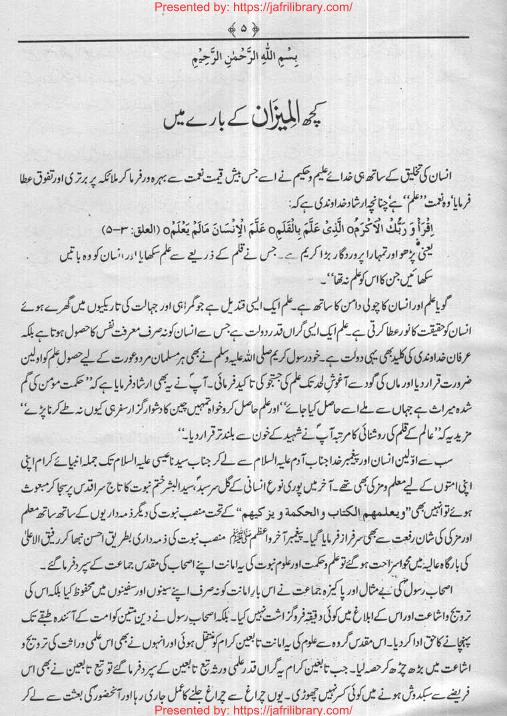 Presented by: https://jafrilibrary.com/
﴿ ۵ ﴾
بِسْمِ اللهِ الرَّحْمٰنِ الرَّحِيْمِ
کچھ المیزان کے بارے میں
انسان کی تخلیق کے ساتھ ہی خدائے علیم و حکیم نے اسے جس بیش قیمت نعمت سے بہرہ ور فرما کر ملائکہ پر برتری اور تفوق عطا
فرمایا وہ نعمت ’’علم‘‘ ہے چنانچہ ارشاد خداوندی ہے کہ:
اِقْرَأْ وَ رَبُّكَ الْاَكْرَمُ ۝ الَّذِىْ عَلَّمَ بِالْقَلَمِ ۝ عَلَّمَ الْاِنْسَانَ مَالَمْ يَعْلَمُ ۝ (العلق: ۳-۵)
یعنی پڑھو اور تمہارا پروردگار بڑا کریم ہے۔ جس نے قلم کے ذریعے سے علم سکھایا اور انسان کو وہ باتیں
سکھائیں جن کا اس کو علم نہ تھا‘‘۔
گویا علم اور انسان کا چولی دامن کا ساتھ ہے۔ علم ایک ایسی قندیل ہے جو گمراہی اور جہالت کی تاریکیوں میں گھرے ہوئے
انسان کو حقیقت کا نور عطا کرتی ہے۔ علم ایک ایسی گراں قدر دولت ہے جس سے انسان کو نہ صرف معرفت نفس کا حصول ہوتا ہے بلکہ
عرفان خداوندی کی کلید بھی یہی دولت ہے۔ خود رسول کریم صلی اللہ علیہ وسلم نے بھی ہر مسلمان مرد و عورت کے لیے حصول علم کو اولین
ضرورت قرار دیا اور ماں کی گود سے آغوش لحد تک علم کی جستجو کی تاکید فرمائی۔ آپؐ نے یہ بھی ارشاد فرمایا ہے کہ ’’حکمت مؤمن کی گم
شدہ میراث ہے جہاں سے ملے اسے حاصل کیا جائے‘‘ اور علم حاصل کرو خواہ تمہیں چین کا دشوار گزار سفر ہی کیوں نہ طے کرنا پڑے‘‘
مزید یہ کہ ’’عالم کے قلم کی روشنائی کا مرتبہ آپؐ نے شہید کے خون سے بلند تر قرار دیا۔‘‘
سب سے اوّلین انسان اور پیغمبر خدا جناب آدم علیہ السلام سے لے کر جناب سیدنا عیسی علیہ السلام تک جملہ انبیائے کرام اپنی
اپنی امتوں کے لیے معلم و مزکی بھی تھے۔ آخر میں پوری نوع انسانی کے گل سرسبد، سید البشر ختم نبوت کا تاج سر اقدس پر سجا کر مبعوث
ہوئے تو انہیں بھی ’’ويعلمهم الكتاب والحكمة و يزكيهم‘‘ کے تحت منصب نبوت کی دیگر ذمہ داریوں کے ساتھ ساتھ معلم
اور مزکی کی شان رفعت سے بھی سرفراز فرمایا گیا۔ پیغمبر آخر و اعظم ﷺ منصب نبوت کی ذمہ داری بطریق احسن نبھا کر رفیق الاعلیٰ
کی بارگاہ عالیہ میں محو استراحت ہو گئے تو علم و حکمت اور علوم نبوت کی یہ امانت اپنے اصحاب کی مقدس جماعت کے سپرد فرما گئے۔
اصحاب رسولؐ کی بے مثال اور پاکیزہ جماعت نے اس بار امانت کو نہ صرف اپنے سینوں اور سفینوں میں محفوظ کیا بلکہ اس کی
ترویج و اشاعت اور اس کے ابلاغ میں کوئی دقیقہ فروگزاشت نہیں کیا۔ بلکہ اصحاب رسول نے دین متین کو امت کے آئندہ طبقے تک
پہنچانے کا حق ادا کر دیا۔ اس مقدس گروہ سے علوم کی یہ امانت تابعین کرام کو منتقل ہوئی اور انہوں نے بھی اس علمی وراثت کی ترویج و
اشاعت میں بڑھ چڑھ کر حصہ لیا۔ جب تابعین کرام یہ گراں قدر علمی ورثہ تبع تابعین کے سپرد فرما گئے تو تبع تابعین نے بھی اس
فریضے سے سبکدوش ہونے میں کوئی کسر نہیں چھوڑی۔ یوں چراغ سے چراغ جلنے کا عمل جاری رہا اور آنحضور کی بعثت سے لے کر
Presented by: https://jafrilibrary.com/